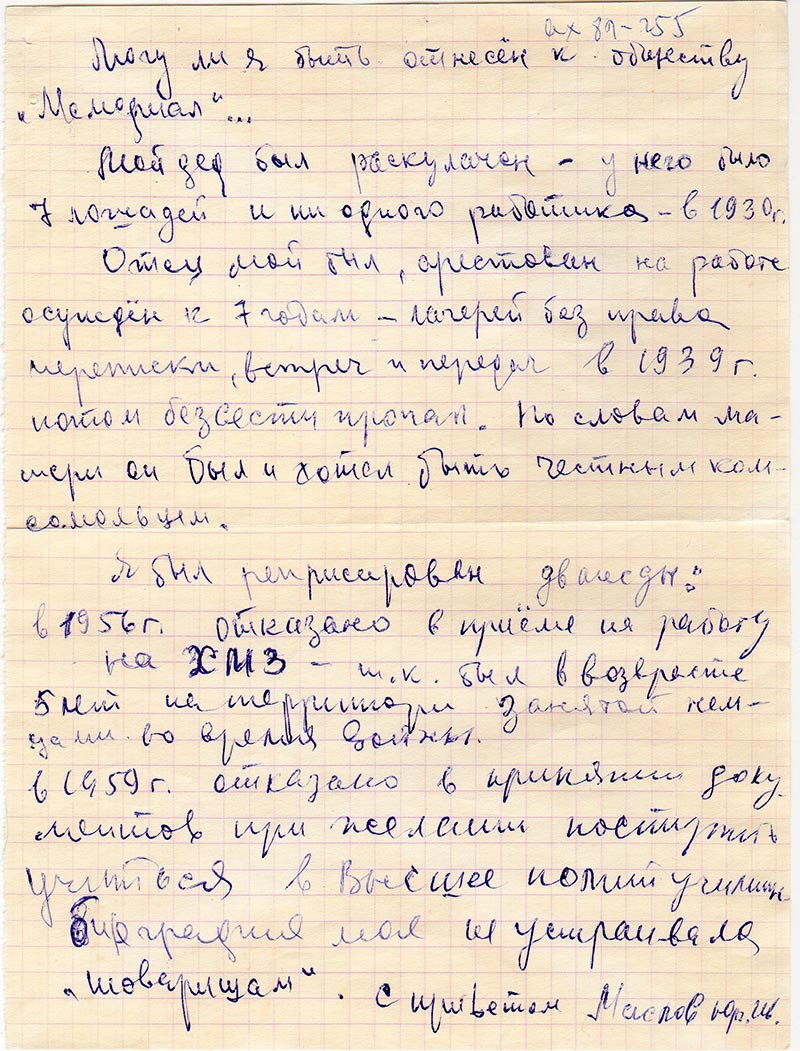 ах 89-255
Могу ли я быть отнесён к обществу
„Мемориал“...
Мой дед был раскулачен – у него было
7 лошадей и ни одного работника – в 1930г.
Отец мой был, арестован на работе
осуждён к 7 годам – лагерей без права
переписки, встреч и передач в 1939г.
потом безвести пропал. По словам ма-
тери он был и хотел быть честным ком-
сомольцем.
Я был реприсирован дважды:
в 1956г. отказано в приёме на работу
на ХМЗ – т.к. был в возврасте
5 лет на территори занятой нем-
цами во время войны.
в 1959г. отказано в принятии доку-
ментов при желании поступить
учиться в Высшее полит училищ-
Биография моя не устраивала
„товарищам“. С приветом Маслов